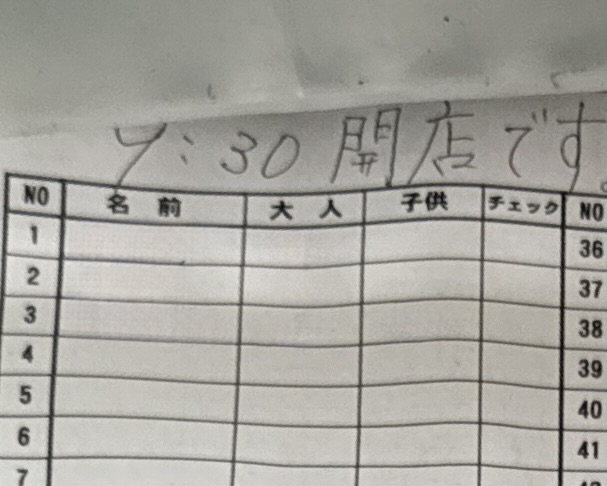 7:30 開店です。
NO 名前 大人 子供 チェック NO
1 36
2 37
3 38
4 39
5 40
6 41
7